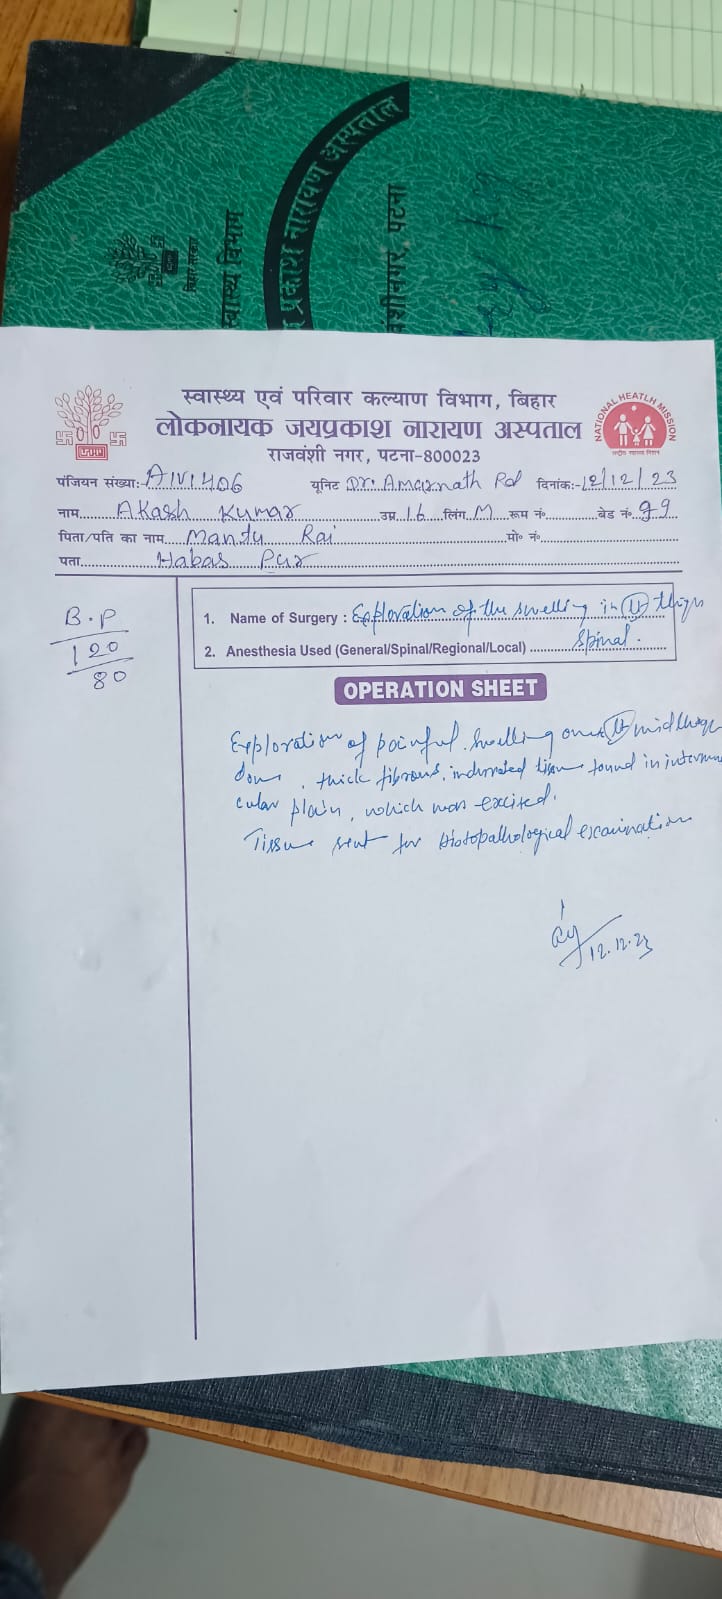 प्रकाश नारायण अस्पताल
स्वास्थ्य विभाग
बिहार सरकार
वंशीनगर, पटना
स्वास्थ्य एवं परिवार कल्याण विभाग, बिहार
लोकनायक जयप्रकाश नारायण अस्पताल
राजवंशी नगर, पटना-800023
NATIONAL HEATLH MISSION
राष्ट्रीय स्वास्थ्य मिशन
पंजियन संख्या:- यूनिट Dr. Amarnath दिनांक:- 12/12/23
नाम Akash Kumar उम्र 16 लिंग M रूम नं. बेड नं. 99
पिता/पति का नाम Mantu Rai मो० नं.
पता Habas Pur
B.P
120
80
1. Name of Surgery : Exploration of the swelling in Lt thigh
2. Anesthesia Used (General/Spinal/Regional/Local) Spinal.
OPERATION SHEET
Exploration of painful swelling over Lt mid thigh
done, thick fibrous, indurated tissue found in intermus
cular plain, which was excited.
Tissue sent for Histopathological examination
12.12.23